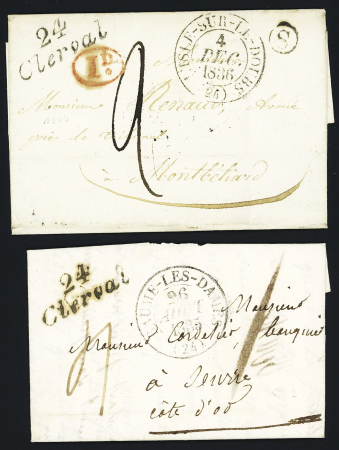 24
Clerval
1D.
L'ISLE-SUR-LE-DOUBS
4
DEC.
1836
(24)
S
2
Monsieur Renaud, Avoué
près le
à Montbéliard
24
Clerval
BAUME-LES-DAMES
26
(24)
Monsieur
Monsieur Cordelier banquier
à Seurre
Côte d'or